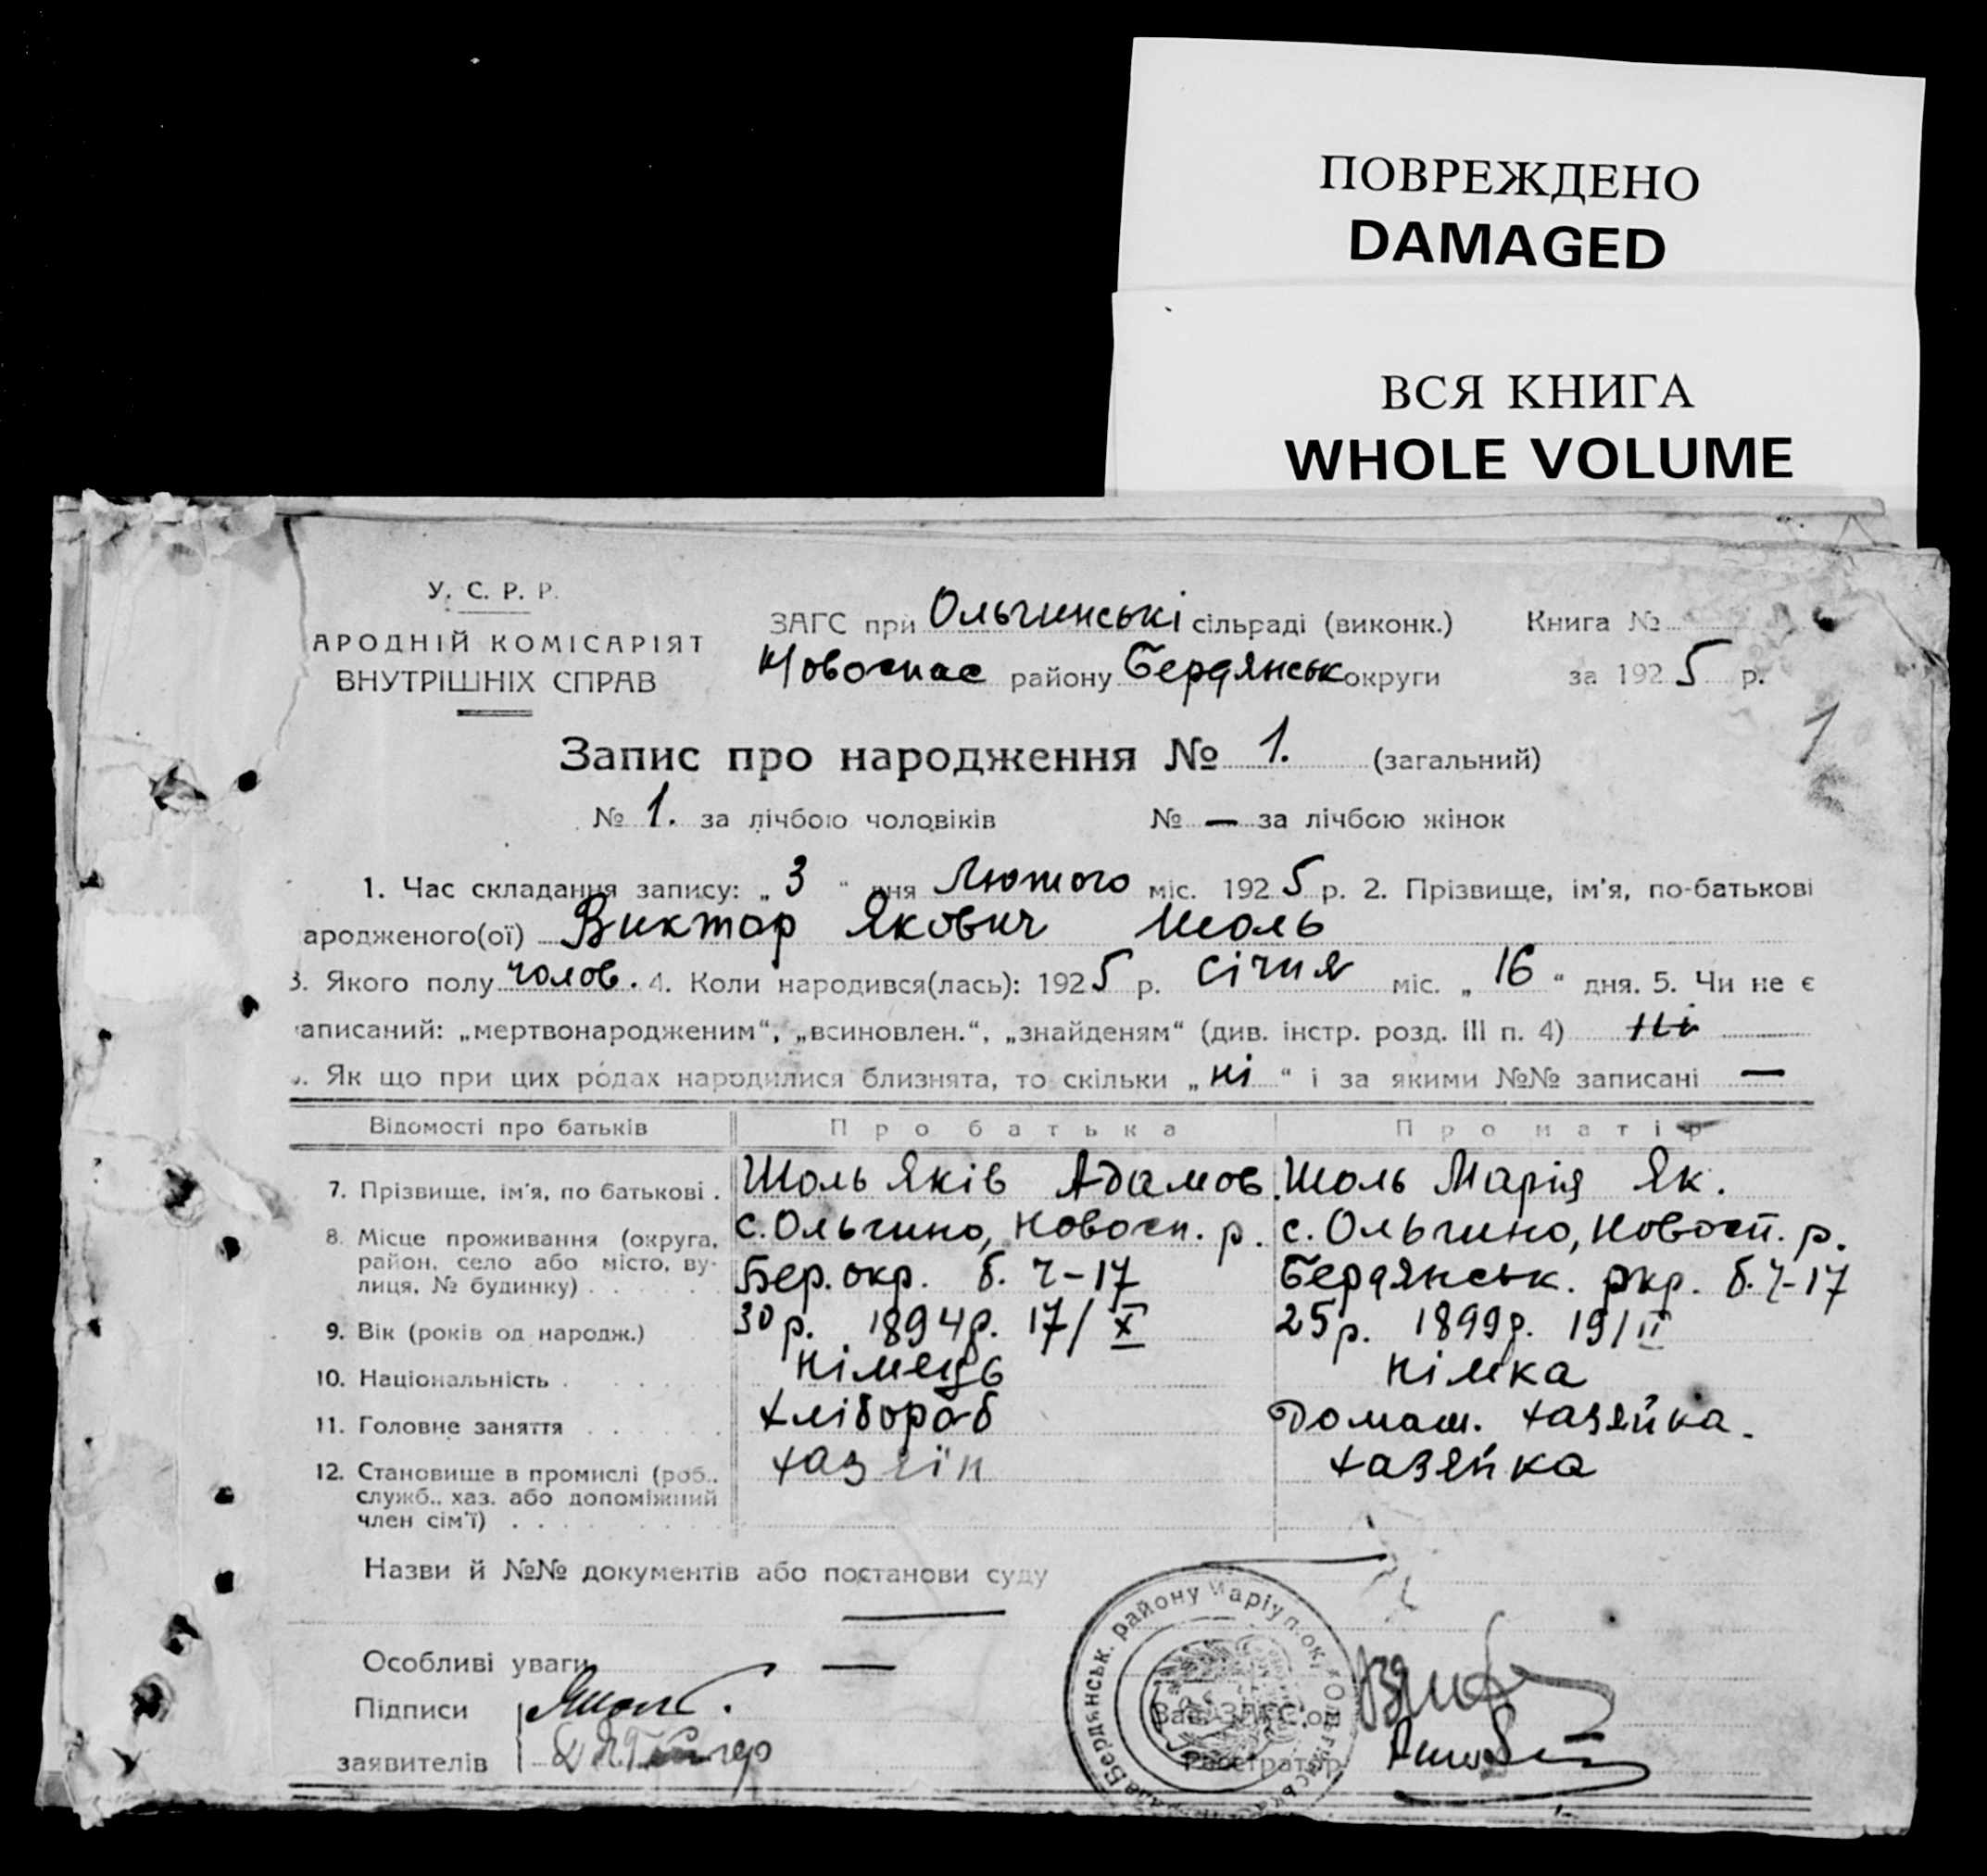 ПОВРЕЖДЕНО
DAMAGED
ВСЯ КНИГА
WHOLE VOLUME
У. С. Р. Р.
АРОДНІЙ КОМІСАРІЯТ
ВНУТРІШНІХ СПРАВ
ЗАГС при Ольгинські сільраді (виконк.)
Книга №
Новоспас району Бердянськ округи
за 1925 р.
1
Запис про народження № 1. (загальний)
№ 1. за лічбою чоловіків № — за лічбою жінок
1. Час складання запису: „3“ дня Лютого міс. 1925 р. 2. Прізвище, ім'я, по-батькові
ародженого(ої) Виктор Якович Шоль
3. Якого полу чолов. 4. Коли народився(лась): 1925 р. Січня міс. „16“ дня. 5. Чи не є
аписаний: „мертвонародженим“, „всиновлен.“, „знайденям“ (див. інстр. розд. III п. 4) ні
. Як що при цих родах народилися близнята, то скільки „ні“ і за якими №№ записані —
Відомості про батьків Про батька Про матір
7. Прізвище, ім'я, по батькові . Шоль Яків Адамов. Шоль Марія Як.
8. Місце проживання (округа, район, село або місто, вулиця, № будинку) . . . . .
с. Ольгино, Новосп. р. с. Ольгино, Новосп. р.
Бер. окр. б. ч-17 Бердянськ. окр. б. ч-17
9. Вік (років од народж.) 30 р. 1894р. 17/X 25р. 1899р. 19/II
10. Національність . німець німка
11. Головне заняття . . . . . хлібороб Домаш. хазяйка.
12. Становище в промислі (роб., служб., хаз. або допоміжний член сім'ї) . . . хазяїн хазяйка
Назви й №№ документів або постанови суду
Особливі уваги —
Підписи
заявителів
Бердянськ. району Маріуп. окр.
Зав. ЗАГС'ом
Реєстратор